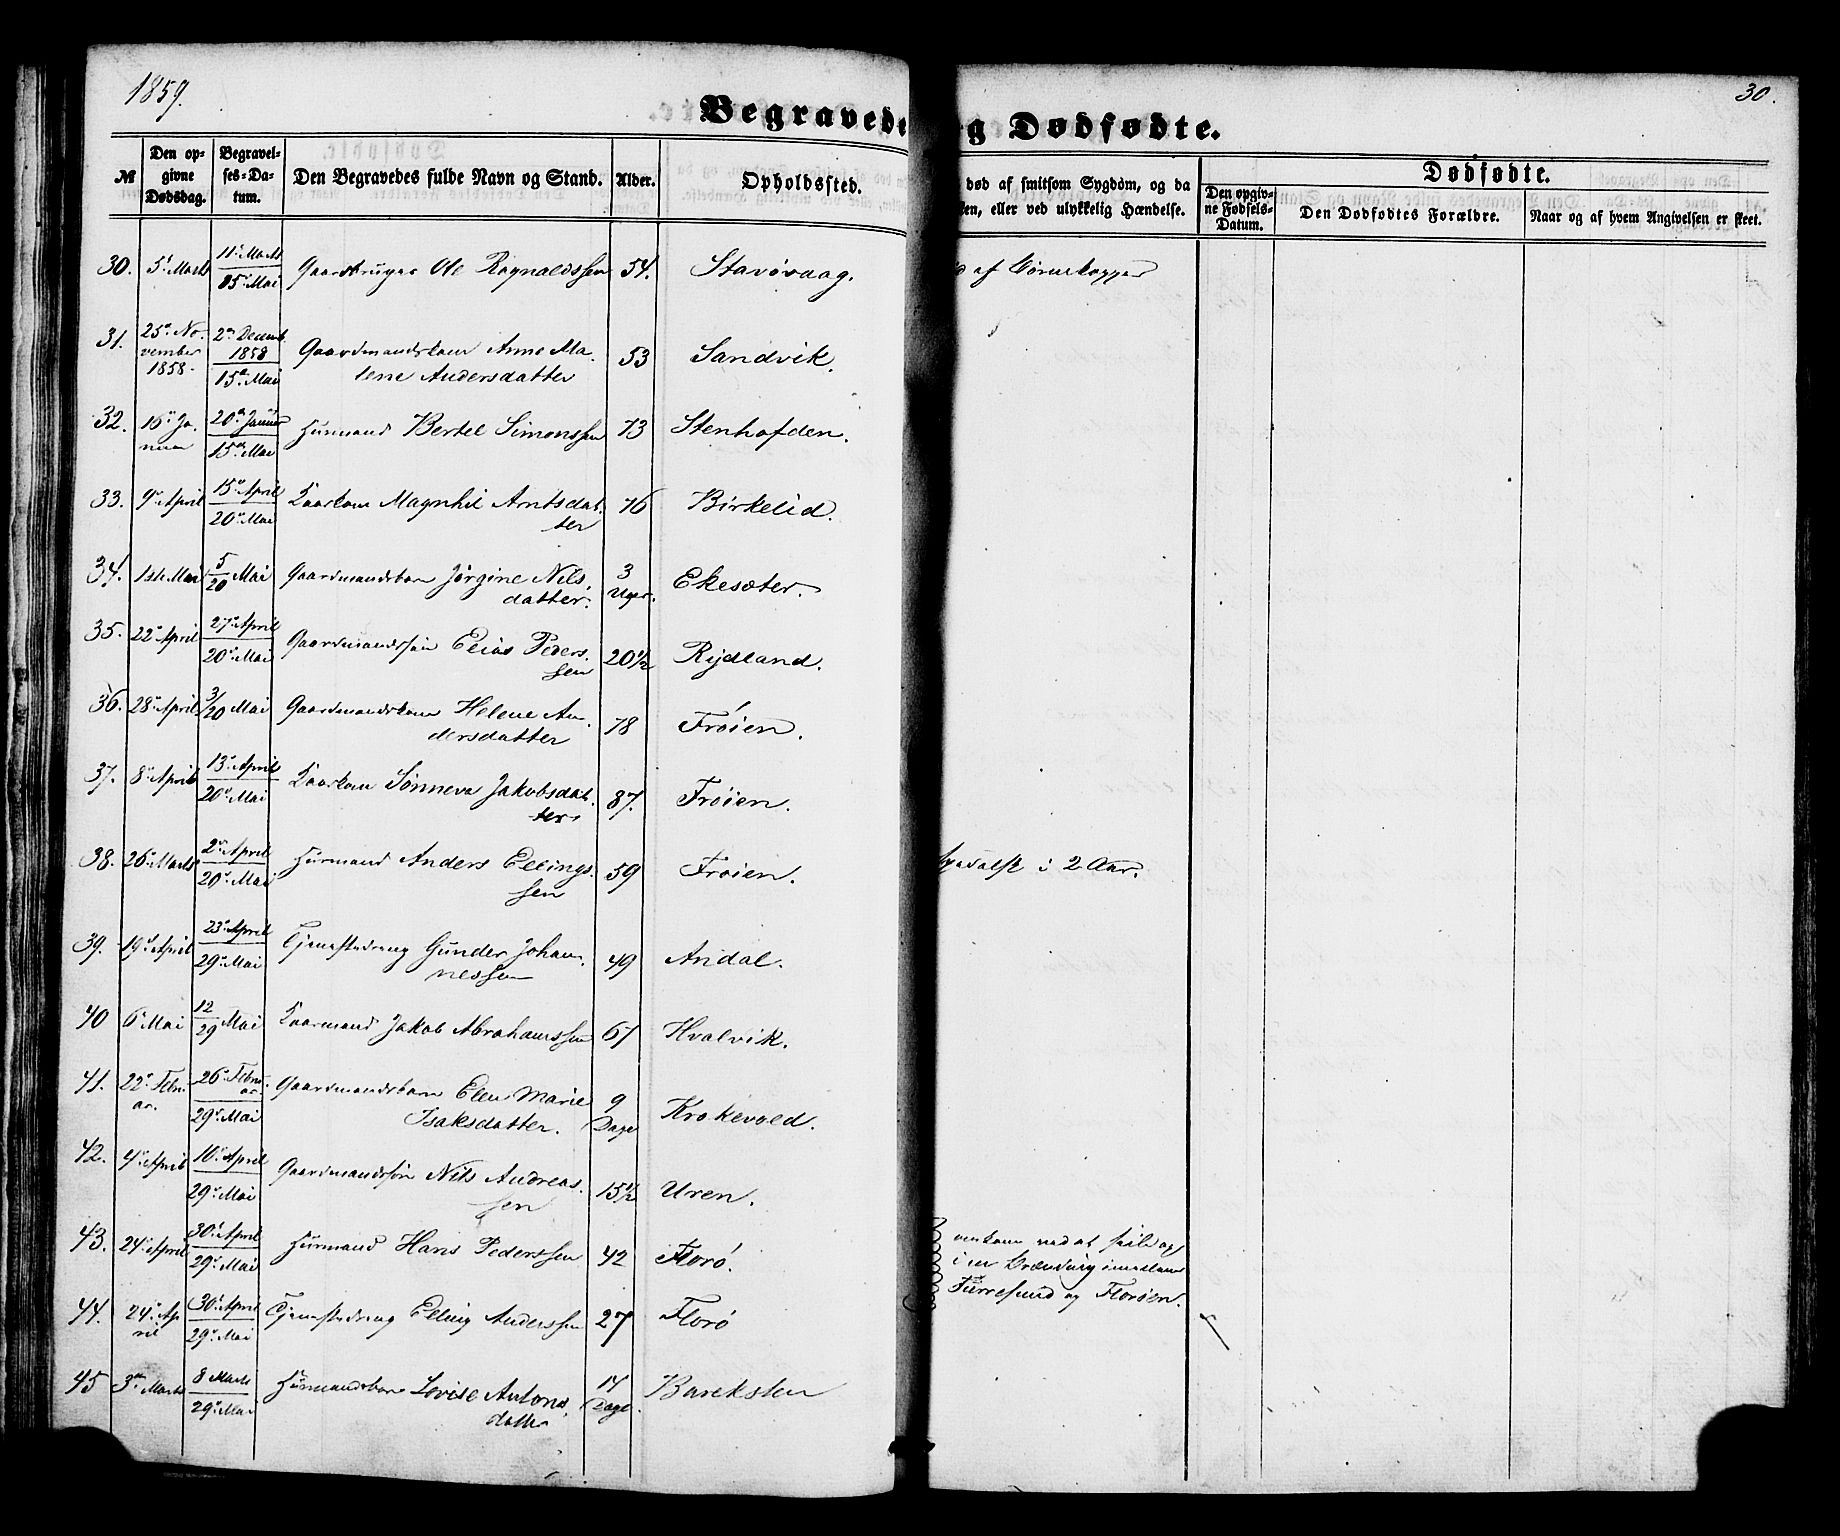 1859.
30.
Begravede
og Dødfødte.
№
Den opgivne Dødsdag.
Begravelses-Datum.
Den Begravedes fulde Navn og Stand.
Alder.
Opholdssted.
død af smitsom Sygdom, og da
ken, eller ved ulykkelig Hændelse.
Dødfødte.
Den opgivne Fødsels-Datum.
Den Dødfødtes Forældre.
Naar og af hvem Angivelsen er skeet.
30. 5t Marts 11t Marts 15t Mai Gaardbruger Ole Ragnaldssen 54. Stavøvaag.
af Børnekopper
31. 25de November 1858. 2den Decemb. 1858 15de Mai Gaardmandskone Anne Malene Andersdatter 53 Sandvik.
32. 16de Januar 20de Januar 15de Mai Huusmand Bertel Simonssen 73 Stenhofden.
33. 9de April 15de April 20de Mai Kaarkone Magnhil Arntsdatter 76 Birkelid.
34. 1ste Mai 5 20 Mai Gaardmandsbarn Jørgine Nilsdatter. 3 Uger. Ekesæter.
35. 22de April 27de April 20de Mai Gaardmandssøn Elias Pederssen 20 1/2 Rydland.
36. 28de April 3/20 Mai Gaardmandskone Helene Andersdatter 78 Frøien.
37. 8de April 13de April 20de Mai Kaarkone Sønneva Jakobsdatter 87. Frøien.
38. 26de Marts 2den April 20de Mai Huusmand Anders Ellingssen 59 Frøien.
spedalsk i 2 Aar.
39. 19de April 23de April 29de Mai Tjenestedreng Gunder Johannessen 49 Andal.
40 6te Mai 12 29 Mai Kaarmand Jakob Abrahamssen 67 Hvalvik.
41. 22de Februar. 26de Februar. 29de Mai Gaardmandsbarn Elen Marie Isaksdatter. 9 Dage Krokevold.
42. 4de April 10de April 29de Mai Gaardmandssøn Nils Andreassen 15 1/2 Uren.
43. 24de April 30te April 29de Mai Huusmand Hans Pederssen 42 Florø.
omkom ved at seile op
i en Brænding imellem
Furresund og Florøen.
44. 24de April 30te April 29de Mai Tjenestedreng Elling Anderssen 27 Florø
45 3die Marts 8 Marts 29de Mai Huusmandsbarn Lovise Antonsdatter 14 Dage. Bareksten